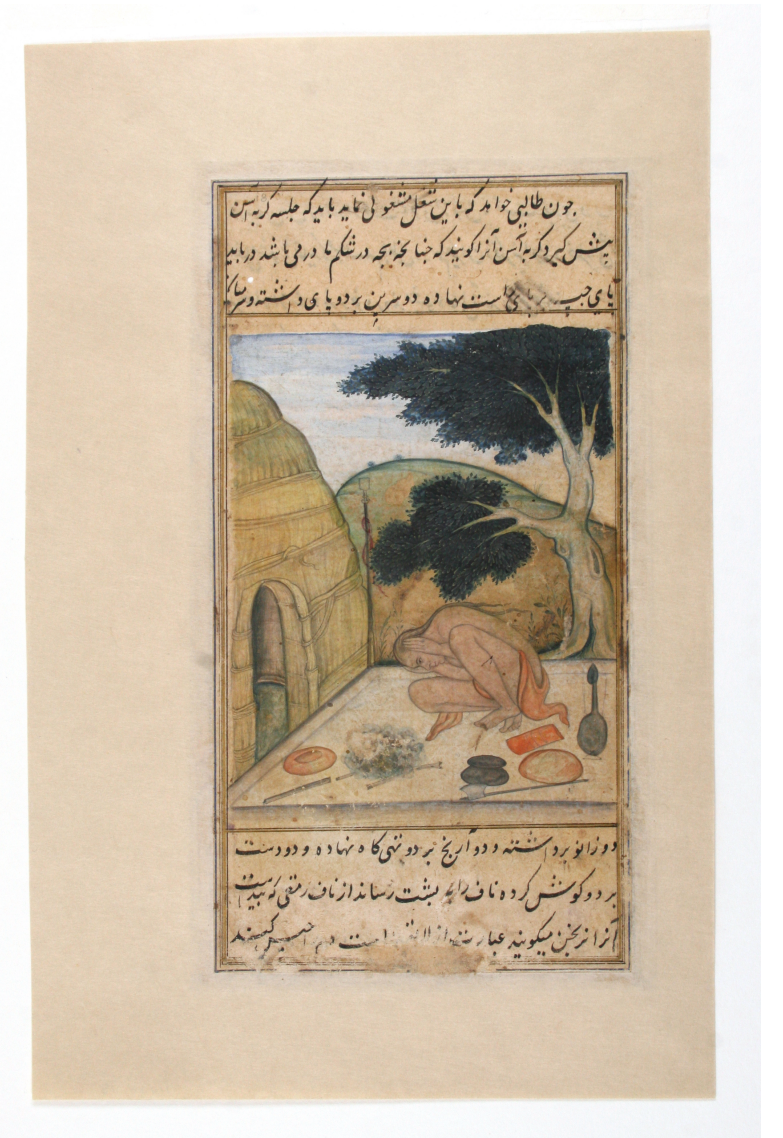 چون طالبی خواهد که باین شغل مشغولی نماید باید که جلسه گربه آسن
پیش گیرد گربه آسن آنرا گویند که چنانچه بچه در شکم مادر می باشد در باید
پای چپ بر پای راست نهاده دو سرین بر دو پای داشته و سر میان
دو زانو برداشته و دو آرنج بر دو تهی گاه نهاده و دو دست
بر دو گوش کرده ناف را به پشت رساند از ناف رمقی که پیداست
آنرا نرنجن میگویند عبارت از است دم